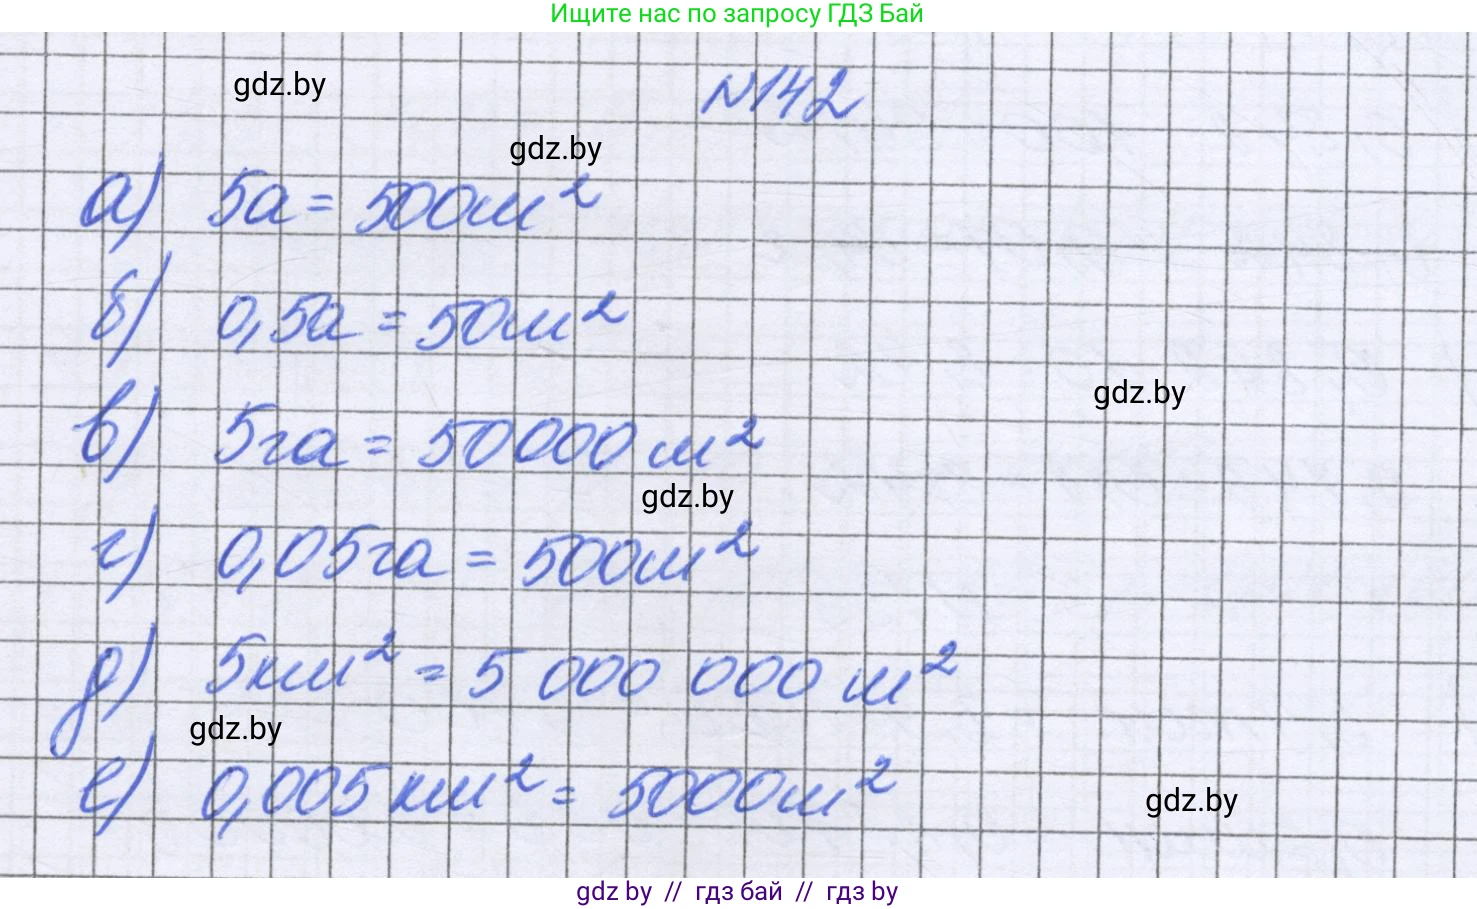 Ищите нас по запросу ГДЗ Бай
gdz.by
№142
gdz.by
а) 5а = 500м²
б) 0,5а = 50м²
gdz.by
в) 5га = 50000 м²
gdz.by
г) 0,05га = 500м²
д) 5км² = 5 000 000 м²
gdz.by
е) 0,005 км² = 5000м²
gdz.by
gdz by // гдз бай // гдз by